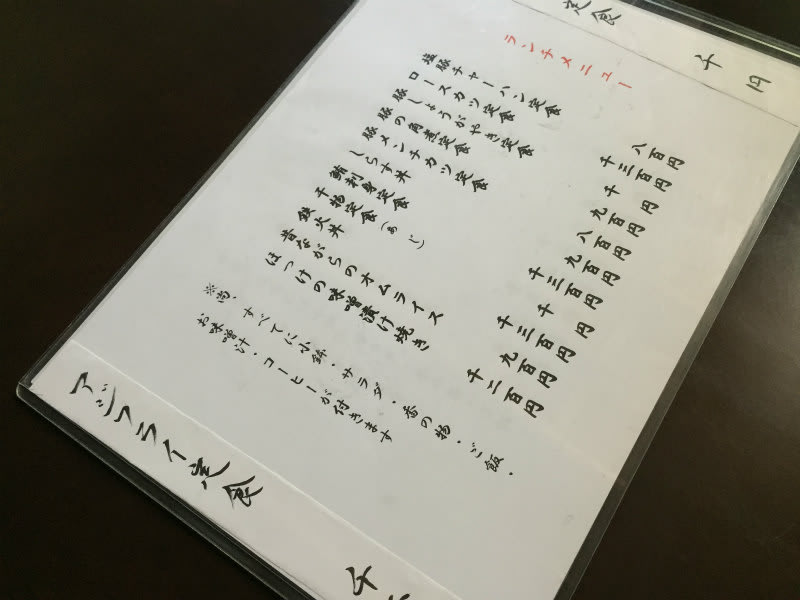 定食 千円
ランチメニュー
塩豚チャーハン定食 八百円
ロースカツ定食 千三百円
豚しょうがやき定食 千円
豚の角煮定食 九百円
メンチカツ定食 八百円
しらす丼 九百円
刺身定食 千三百円
干物定食(あじ) 千円
鉄火丼 千三百円
昔ながらのオムライス 九百円
ほっけの味噌漬け焼き 千二百円
※尚、すべてに小鉢・サラダ・香の物・ご飯・
お味噌汁・コーヒーが付きます
アジフライ定食 千